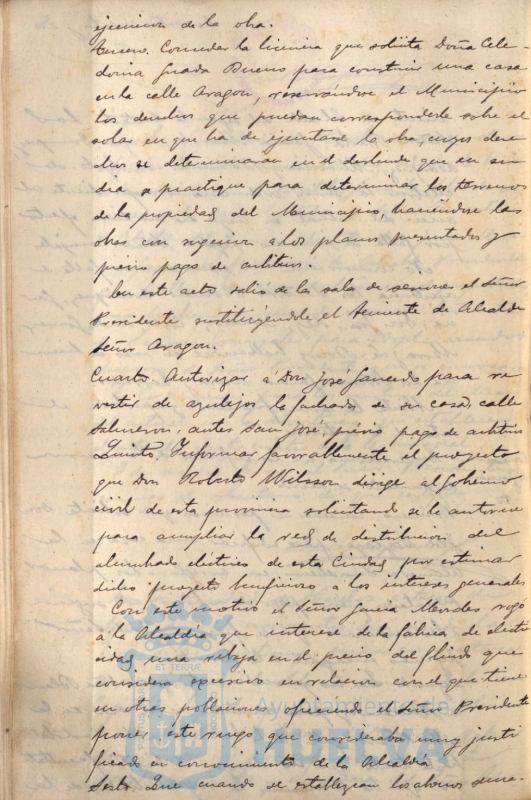 ejecucion de la obra.
Tercero. Conceder la licencia que solicita Doña Cele-
donia Juada Bueno para construir una casa
en la calle Aragon, reservandose el Municipio
los derechos que puedan corresponderle sobre el
solar en que ha de ejecutarse la obra, cuyos dere-
chos se determinaran en el deslinde que en su
dia se practique para determinar los terrenos
de la propiedad del Municipio, haciendose las
obras con sugecion a los planos presentados y
previo pago de arbitrios.
En este acto salio de la sala de sesiones el Señor
Presidente sustituyendole el Teniente de Alcalde
Señor Aragon.
Cuarto. Autorizar á Don José Saucedo para re
vestir de azulejos la fachada de su casa, calle
Salmeron, antes San José, prévio pago de arbitrios
Quinto. Informar favorablemente el proyecto
que Don Roberto Wilsson dirige al Gobierno
civil de esta provincia solicitando se le autorice
para ampliar la red de distribucion del
alumbrado electrico de esta Ciudad por estimar
dicho proyecto beneficioso a los intereses generales
Con este motivo el Señor Garcia Morales rogó
á la Alcaldia que interese de la fabrica de electri
cidad una rebaja en el precio del fluido que
considera excesivo en relacion con el que tiene
en otras poblaciones ofreciendo el Señor Presidente
poner este ruego que consideraba muy justi
ficado en conocimiento de la Alcaldia
Sesto. Que cuando se establezcan los abonos sema-
Ayuntamiento de
HUELVA